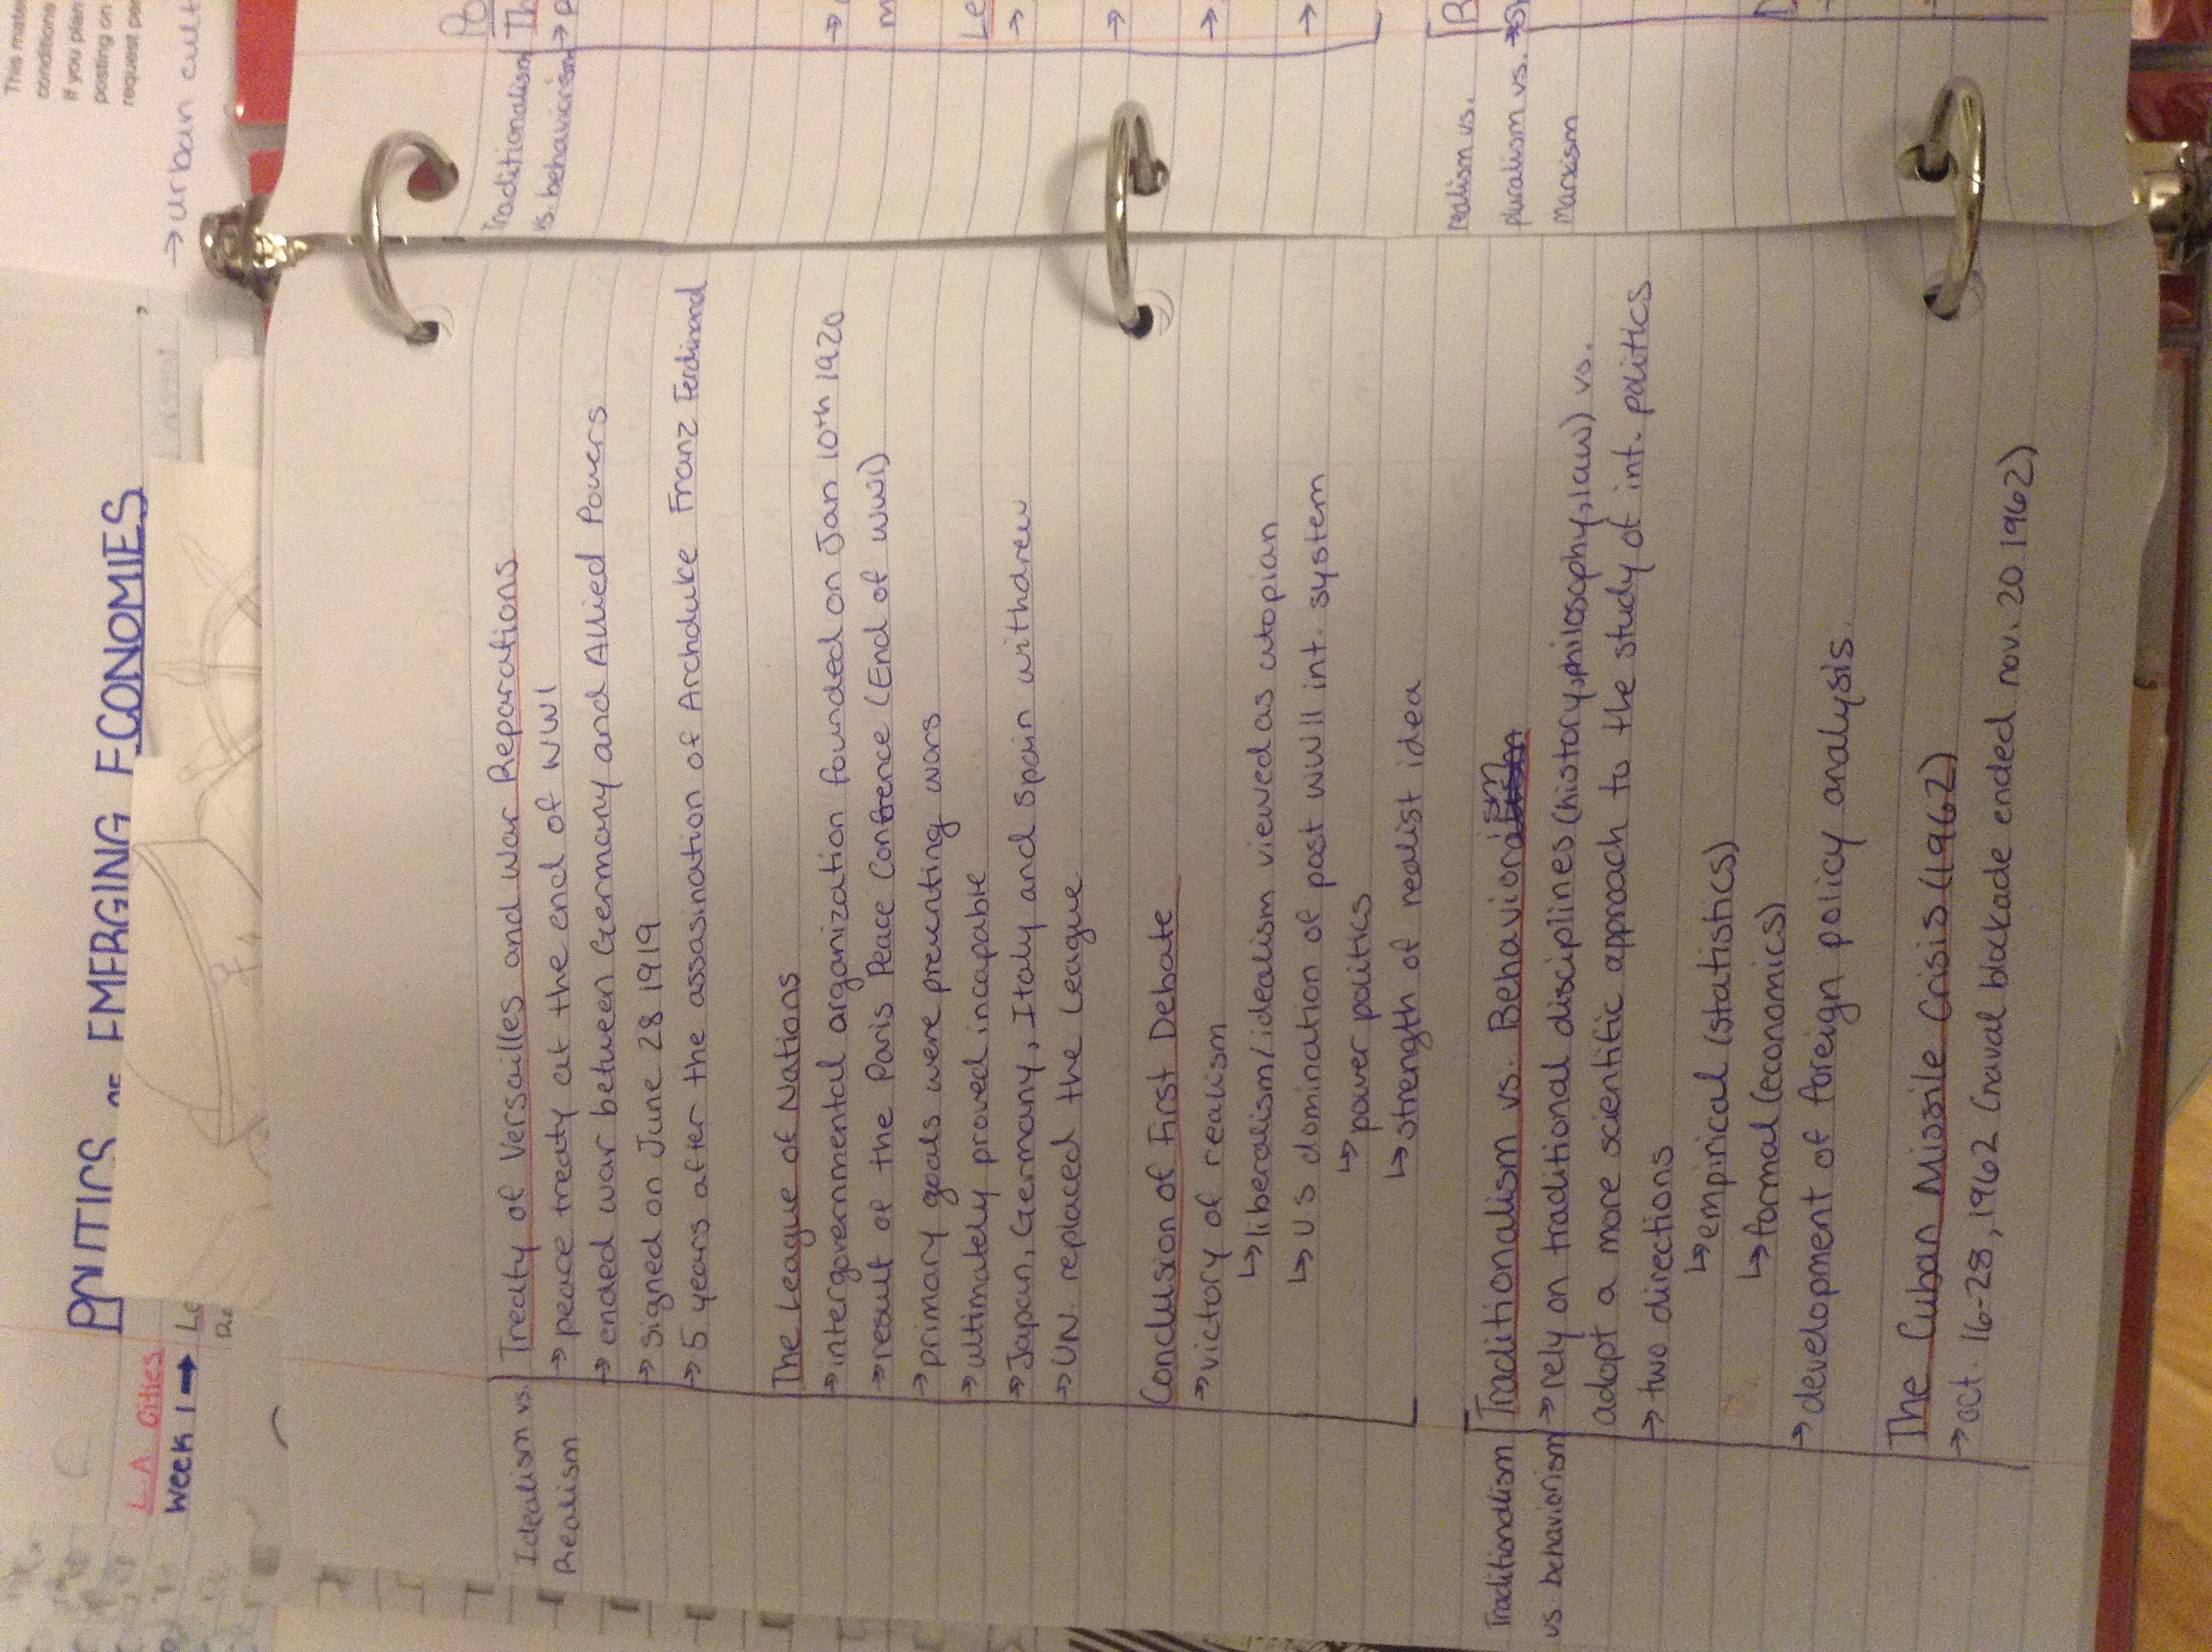 POLITICS OF EMERGING ECONOMIES
LA Cities
Week 1 →
→ urban cult
This mate
conditions
If you plan
posting on
request pe
Idealism vs.
Realism
Treaty of Versailles and War Reparations
→ peace treaty at the end of WWI
→ ended war between Germany and Allied Powers
→ signed on June 28 1919
→ 5 years after the assasination of Archduke Franz Ferdinand
The League of Nations
→ intergovernmental organization founded on Jan 10th 1920
→ result of the Paris Peace Conference (End of WWI)
→ primary goals were preventing wars
→ ultimately proved incapable
→ Japan, Germany, Italy and Spain withdrew
→ UN. replaced the League
Conclusion of First Debate
→ victory of realism
↳ liberalism/idealism viewed as utopian
↳ US domination of post WWII int. system
↳ power politics
↳ strength of realist idea
Traditionalism
vs. behaviorism
Traditionalism vs. Behaviorism
→ rely on traditional disciplines (history, philosophy, law) vs.
adopt a more scientific approach to the study of int. politics
→ two directions
↳ empirical (statistics)
↳ formal (economics)
→ development of foreign policy analysis.
The Cuban Missile Crisis (1962)
→ oct. 16-28, 1962 (naval blockade ended nov. 20 1962)
Traditionalism
vs. behaviorism
realism vs.
pluralism vs.
Marxism